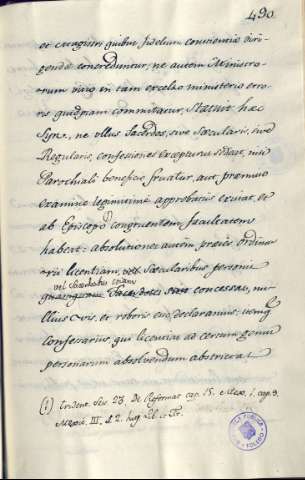 490.
et Magnis quibus fidelium conscientiæ diri-
gendæ concreduntur, ne autem Ministro-
rum vitio in tam excelso ministerio erro-
ris quidpiam committatur, Statuit hæc
Syn., ne ullus Sacerdos, sive Sæcularis, sive
Regularis, confesiones excepturus sedeat, nisi
Parochiali beneficio fruatur, aut præmisso
examine legitimime approbatus existat, et
ab Episcopo congruentem facultatem
habeat: absolutiones autem præter ordina-
rii licentiam, Sæcularibus personis
vel Sacerdotibus etiam
quamquam concessas, nu-
llius vis, et roboris esse declaramus: itemq
Confesarius, qui licentias ad certum genus
personarum absolvendum abstrictas
(1) Trident. Ses. 23. De Reformat. cap. 15. Mex. 1, cap. 9.
Mexic. III. t. 2.